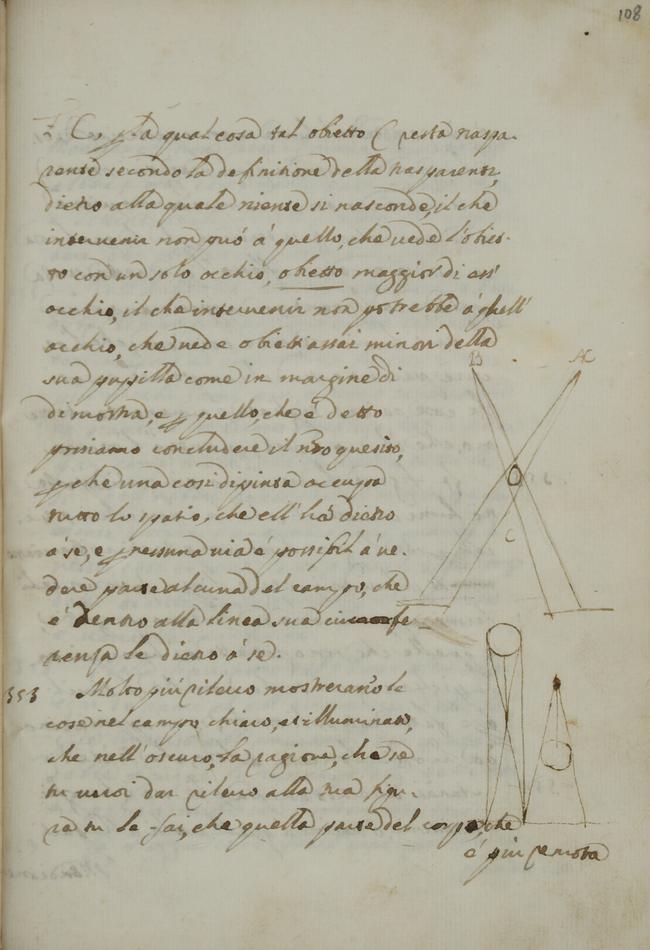 108
F C. p la qual cosa tal obietto C resta traspa-
rente secondo la definitione della trasparentia,
dietro alla quale niente si nasconde, il che
intervenir non può à quello, che vede l'obiet-
to con un solo occhio, obietto maggior di ess'
occhio, il che intervenir non potrebbe à quell'
occhio, che vede obietti assai minori della
B AC
sua pupilla come in margine si
dimostra, e p quello, che è detto
possiamo concludere il nro quesito,
p che una cosa dipinta occupa
tutto lo spatio, che ell' hà dietro
C
à se, e p nessuna via è possibil à ve-
dere parte alcuna del campo, che
è dentro alla linea sua circunfe-
renza le dietro à se.
353 Molto più rilievo mostrerano le
cose nel campo chiaro, et illuminato,
che nell' oscuro, la ragione, che se
tu vuoi dar rilievo alla tua figu-
ra tu la fai, che quella parte del corpo, che
è più remota